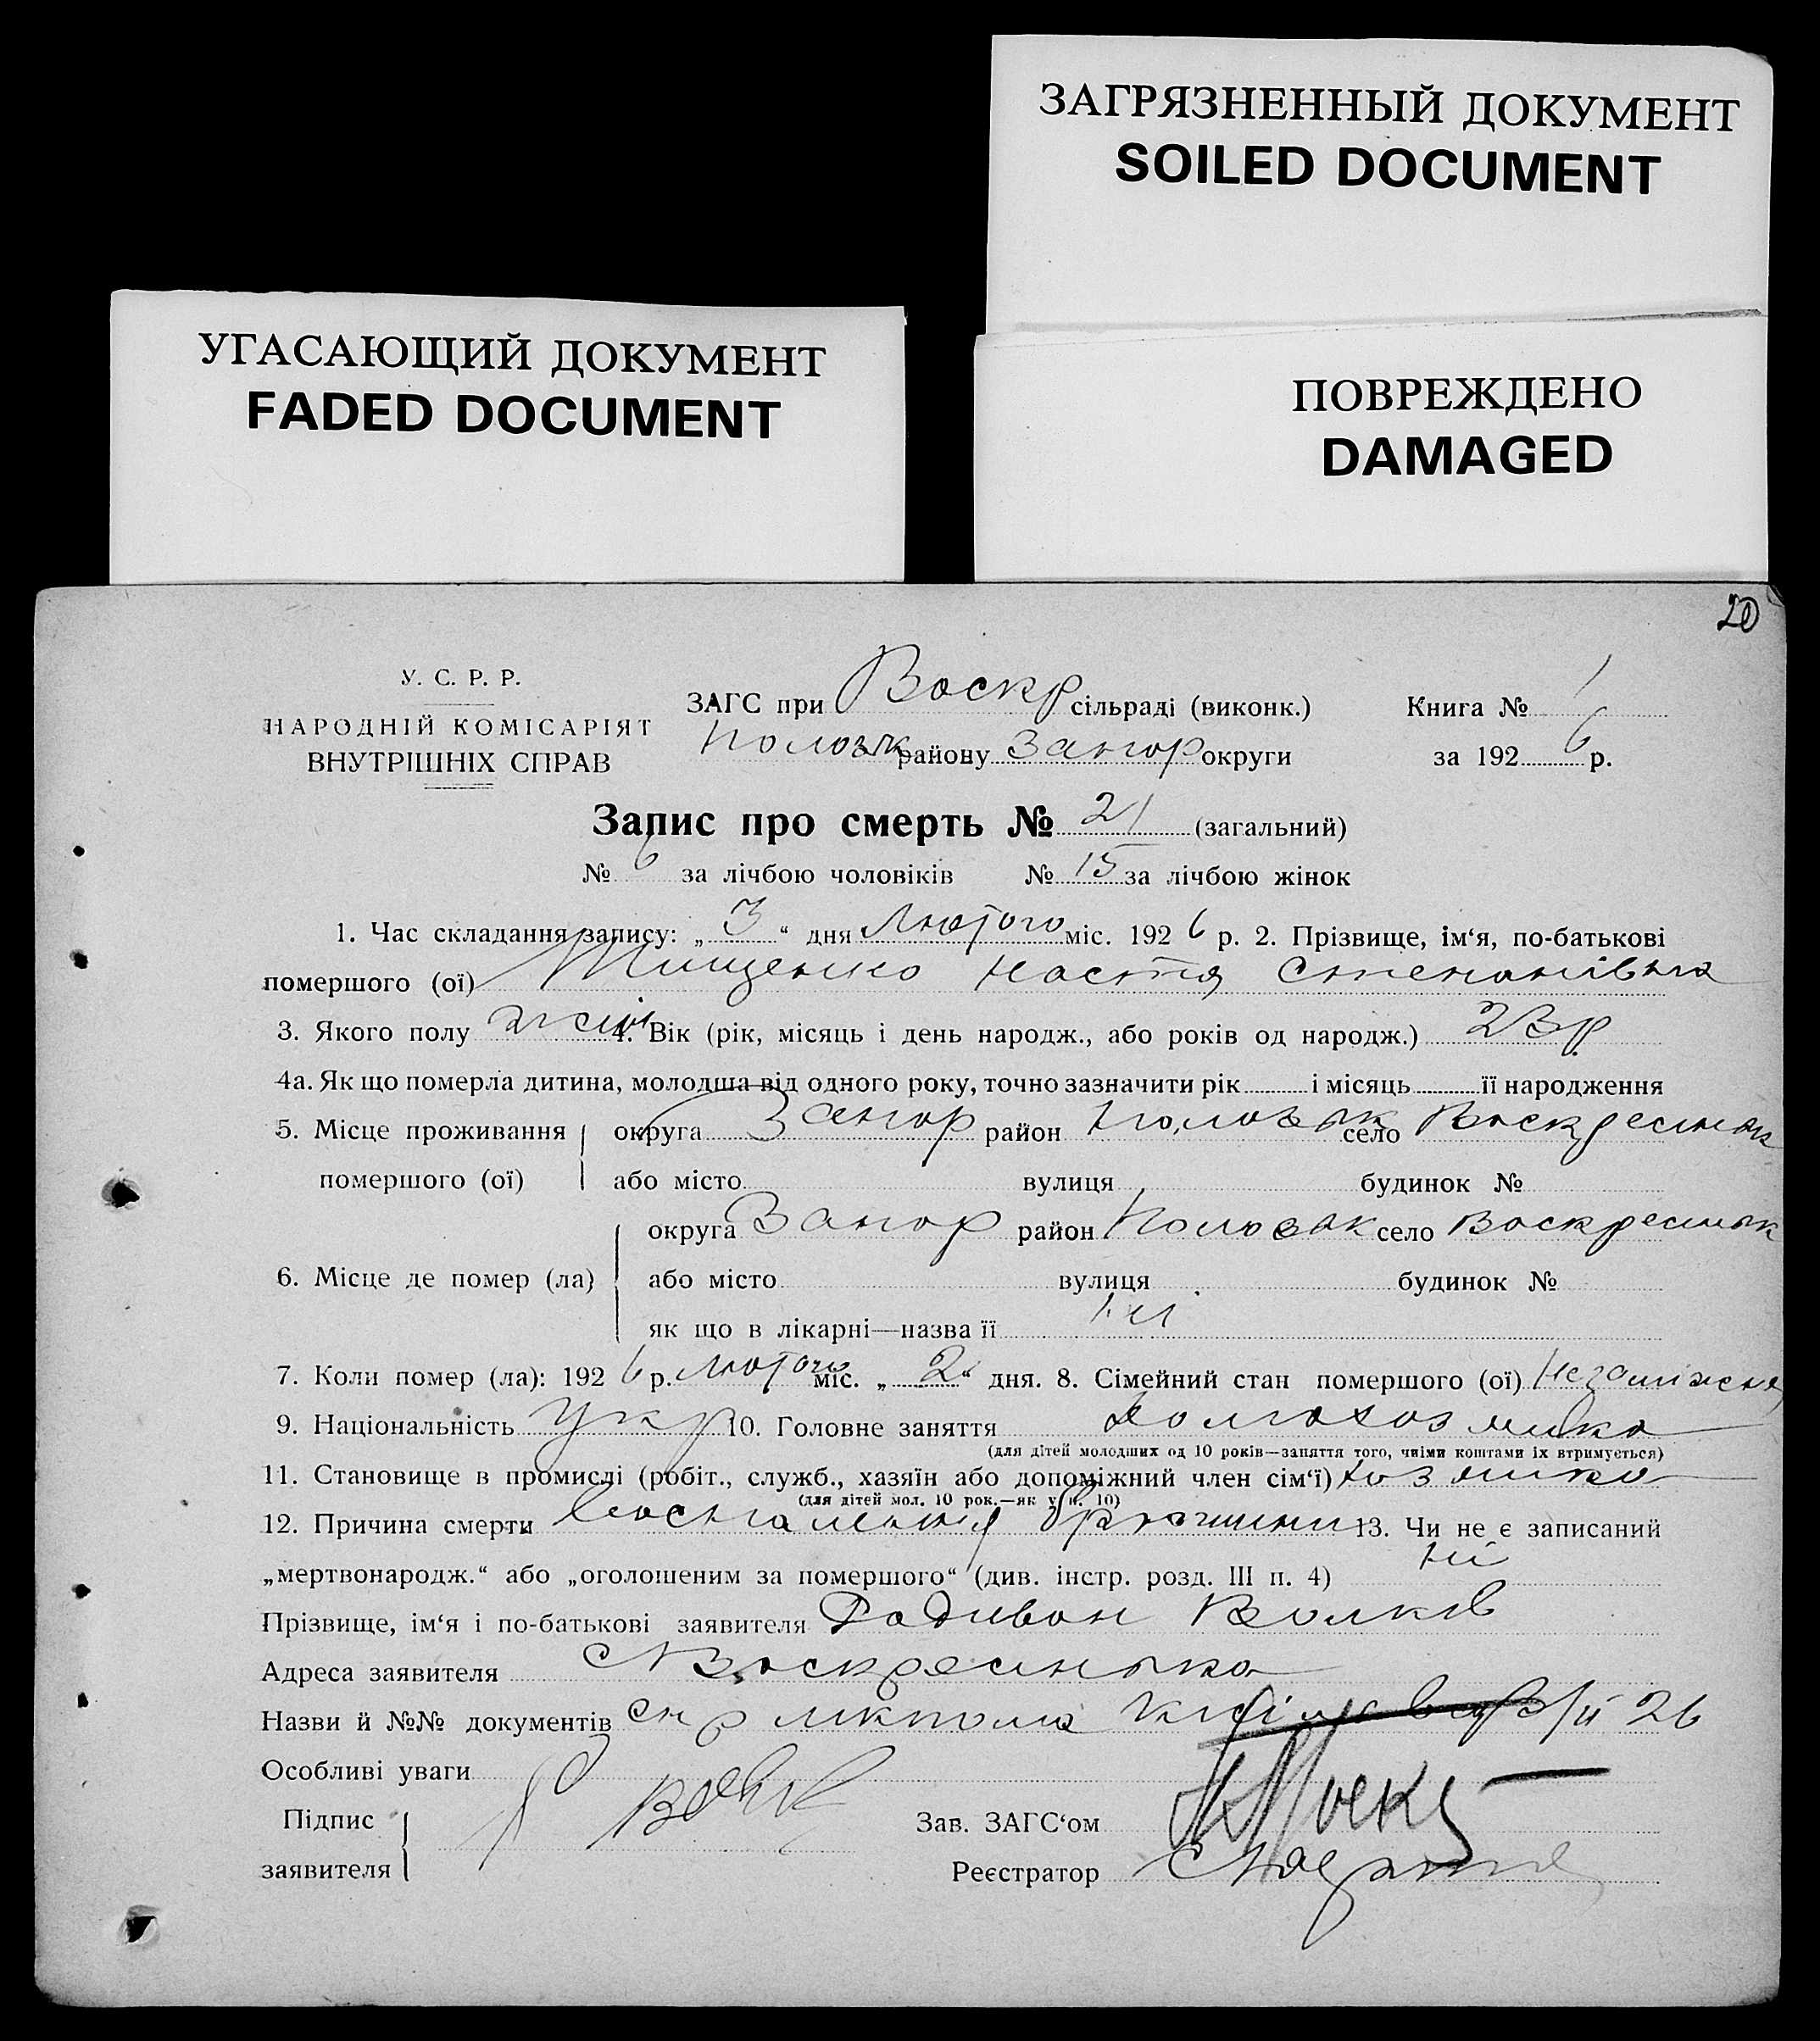 ЗАГРЯЗНЕННЫЙ ДОКУМЕНТ
SOILED DOCUMENT
УГАСАЮЩИЙ ДОКУМЕНТ
FADED DOCUMENT
ПОВРЕЖДЕНО
DAMAGED
20
У. С. Р. Р.
НАРОДНІЙ КОМІСАРІЯТ
ВНУТРІШНІХ СПРАВ
ЗАГС при Воскр сільраді (виконк.)
Пологівськ району Запор округи
Книга № 1
за 192 6 р.
Запис про смерть № 21 (загальний)
№ 6 за лічбою чоловіків № 15 за лічбою жінок
1. Час складання запису: „ 3 “ дня Лютого міс. 192 6 р. 2. Прізвище, ім‘я, по-батькові
помершого (ої) Тищенко Настя Степанівна
3. Якого полу жін 4. Вік (рік, місяць і день народж., або років од народж.) 23 р
4а. Як що померла дитина, молодша від одного року, точно зазначити рік і місяць її народження
5. Місце проживання помершого (ої) округа Запор район село Воскресенськ
або місто вулиця будинок №
6. Місце де помер (ла) округа Запор район село Воскресеньк
або місто вулиця будинок №
як що в лікарні—назва її Ні
7. Коли помер (ла): 192 6 р. Лютого міс. „ 2 “ дня. 8. Сімейний стан помершого (ої) Незаміжня
9. Національність Укр 10. Головне заняття
(для дітей молодших од 10 років—заняття того, чиїми коштами їх втримується)
11. Становище в промислі (робіт., служб., хазяїн або допоміжний член сім‘ї)
(для дітей мол. 10 рок.—як у п. 10)
12. Причина смерти 13. Чи не є записаний
„мертвонародж.“ або „оголошеним за помершого“ (див. інстр. розд. III п. 4) Ні
Прізвище, ім‘я і по-батькові заявителя Радивон Волков
Адреса заявителя с Воскресенька
Назви й №№ документів 3/II 26
Особливі уваги
Підпис заявителя
Зав. ЗАГС‘ом
Реєстратор